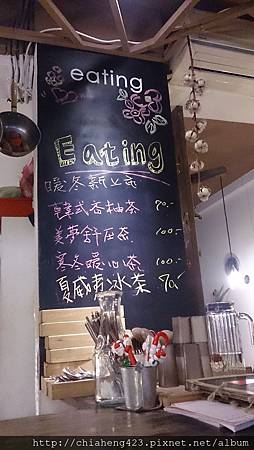 eating
Eating
暖冬新上市
韓式香柚茶 90.-
美夢舒压茶 100.-
寒冬暖心茶 100.-
夏威夷冰茶 90.-
http://chiaheng423.pixnet.net/album